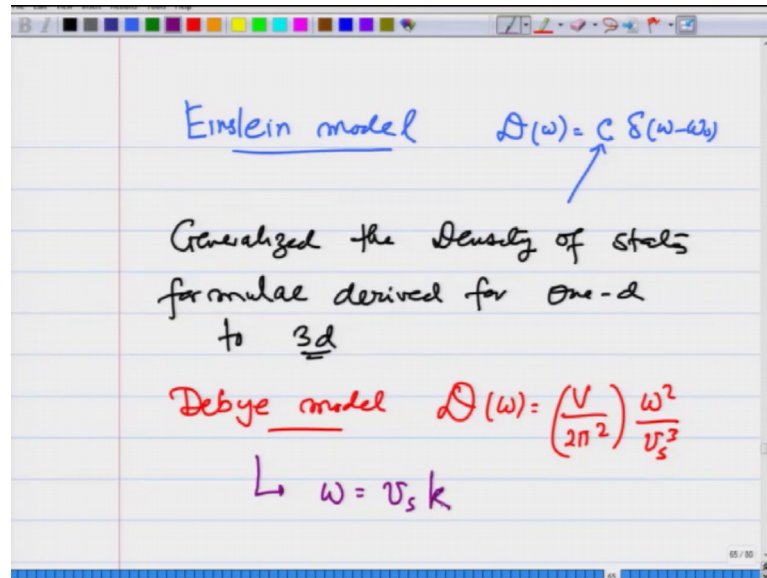 Einstein model D(ω) = C δ(ω-ω₀)
Generalized the Density of states
formulae derived for one-d
to 3d
Debye model D(ω) = (V/2π²) ω²/v_s³
↳ ω = v_s k
65 / 80
65